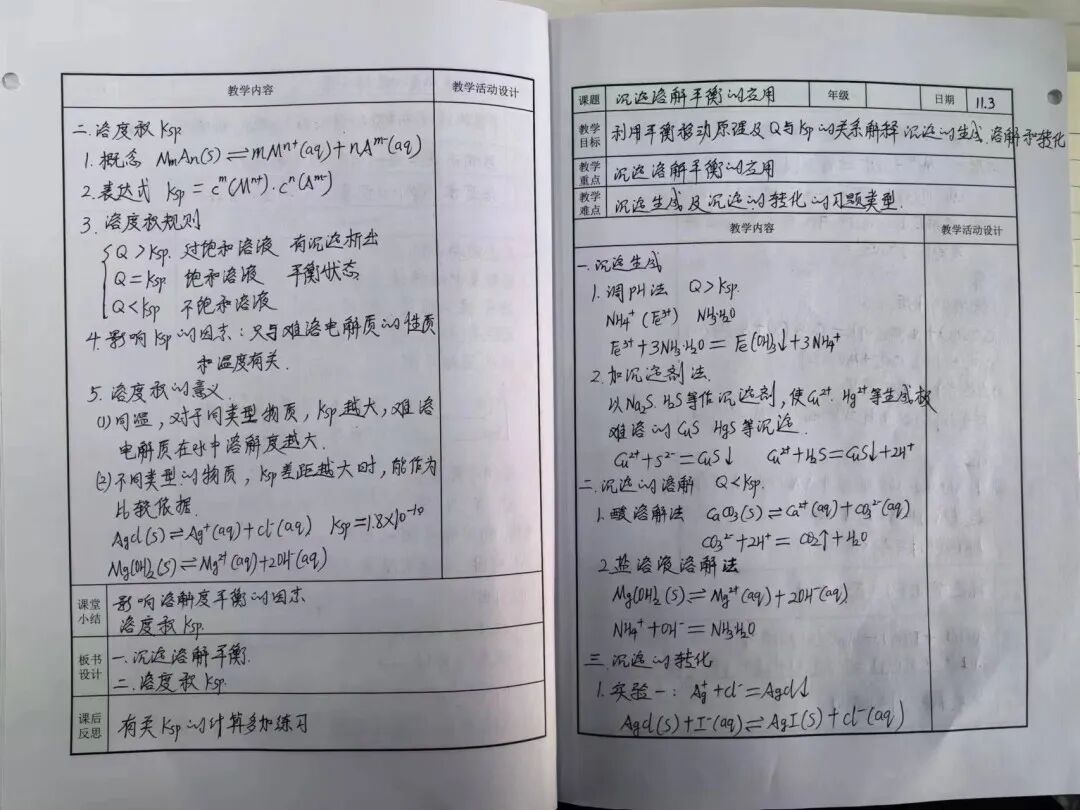 教学内容 教学活动设计
二.溶度积Ksp
1.概念 MmAn(s)⇌mMⁿ⁺(aq)+nAᵐ⁻(aq)
2.表达式 Ksp=cᵐ(Mⁿ⁺)·cⁿ(Aᵐ⁻)
3.溶度积规则
Q>Ksp 过饱和溶液 有沉淀析出
Q=Ksp 饱和溶液 平衡状态
Q<Ksp 不饱和溶液
4.影响Ksp的因素:只与难溶电解质的性质
和温度有关.
5.溶度积的意义.
(1)同温,对于同类型物质,Ksp越大,难溶
电解质在水中溶解度越大.
(2)不同类型的物质,Ksp差距越大时,能作为
比较依据.
AgCl(s)⇌Ag⁺(aq)+Cl⁻(aq) Ksp=1.8×10⁻¹⁰
Mg(OH)₂(s)⇌Mg²⁺(aq)+2OH⁻(aq)
课堂小结 影响溶解度平衡的因素
溶度积Ksp.
板书设计 一.沉淀溶解平衡.
二.溶度积Ksp.
课后反思 有关Ksp的计算多加练习
课题 沉淀溶解平衡的应用 年级 日期 11.3
教学目标 利用平衡移动原理及Q与Ksp的关系解释沉淀的生成.溶解和转化
教学重点 沉淀溶解平衡的应用
教学难点 沉淀生成及沉淀的转化的习题类型.
教学内容 教学活动设计
一.沉淀生成
1.调pH法 Q>Ksp.
NH₄⁺(Fe³⁺) NH₃·H₂O
Fe³⁺+3NH₃·H₂O=Fe(OH)₃↓+3NH₄⁺
2.加沉淀剂法.
以Na₂S.H₂S等作沉淀剂,使Cu²⁺.Hg²⁺等生成极
难溶的CuS HgS等沉淀.
Cu²⁺+S²⁻=CuS↓ Cu²⁺+H₂S=CuS↓+2H⁺
二.沉淀的溶解 Q<Ksp.
1.酸溶解法 CaCO₃(s)⇌Ca²⁺(aq)+CO₃²⁻(aq)
CO₃²⁻+2H⁺=CO₂↑+H₂O
2.盐溶液溶解法
Mg(OH)₂(s)⇌Mg²⁺(aq)+2OH⁻(aq)
NH₄⁺+OH⁻=NH₃·H₂O
三.沉淀的转化
1.实验一:Ag⁺+Cl⁻=AgCl↓
AgCl(s)+I⁻(aq)⇌AgI(s)+Cl⁻(aq)